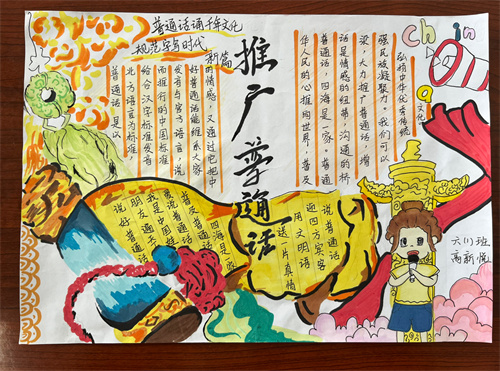 普通话诵千年文化
规范字写时代新篇
China
推广普通话
普通话是以
北方语言为标准
给合汉字标准发音
而推行的中国标准
发音与各方语言，说
好普通话能维系大家
的情感，又通过它把中
华人民的心推向世界，普及
普通话，四海是一家。普通
话是情感的纽带，沟通的桥
梁，大力推广普通话，增
强民族凝聚力。我们可以
弘扬中华优秀传统
文化
说好普通话
朋友遍天下
爱说普通话
我是中国娃
普及普通话
四海是一家
说普通话
迎四方宾客
用文明语
送一片真情
六(1)班
高新悦